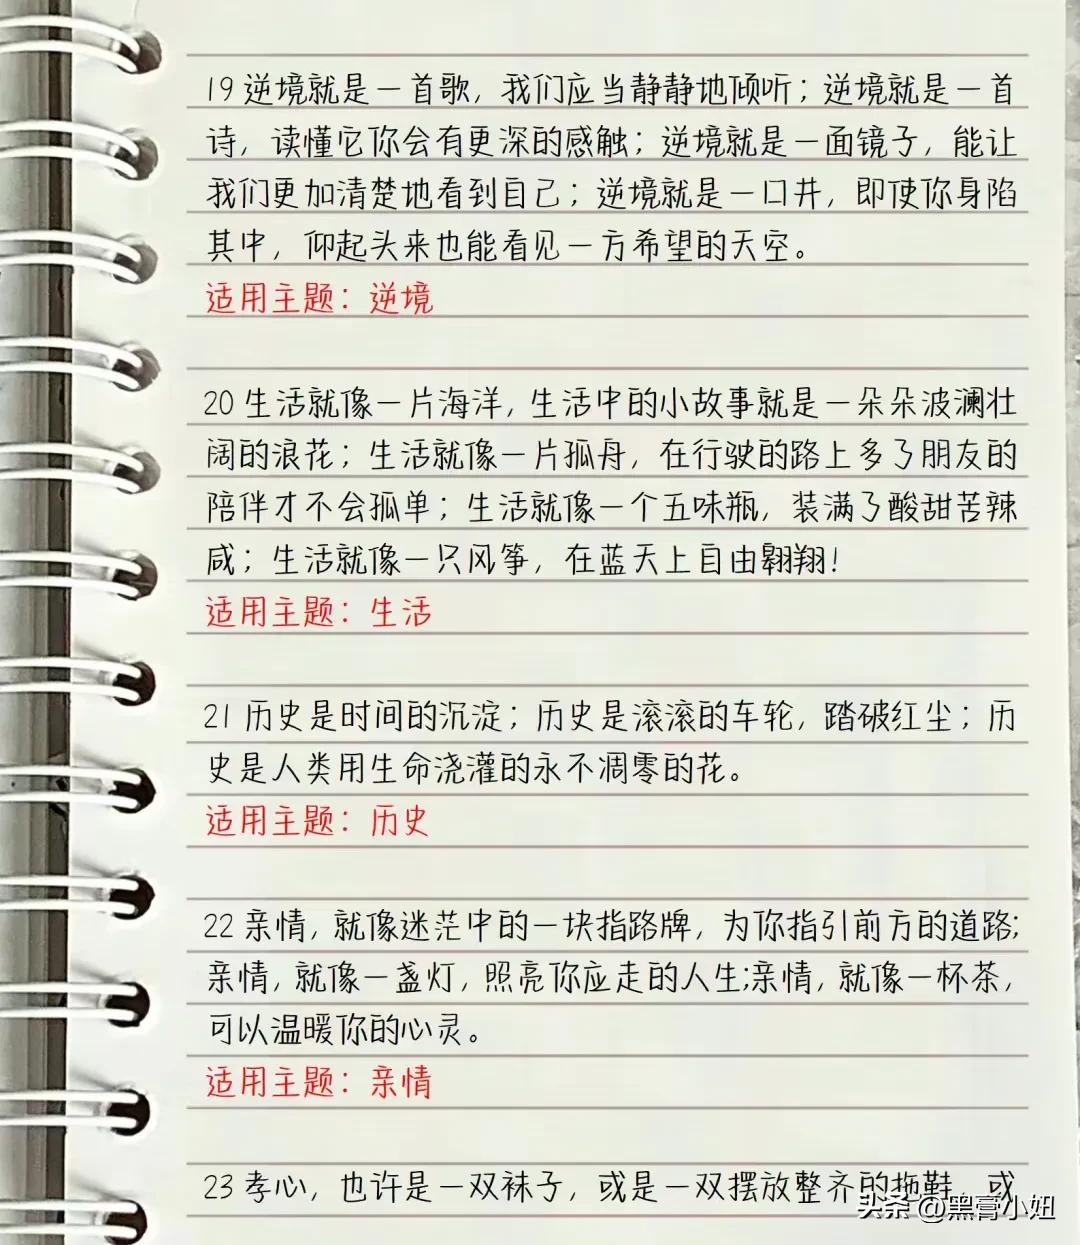 19 逆境就是一首歌，我们应当静静地倾听；逆境就是一首
诗，读懂它你会有更深的感触；逆境就是一面镜子，能让
我们更加清楚地看到自己；逆境就是一口井，即使你身陷
其中，仰起头来也能看见一方希望的天空。
适用主题：逆境
20 生活就像一片海洋，生活中的小故事就是一朵朵波澜壮
阔的浪花；生活就像一片孤舟，在行驶的路上多了朋友的
陪伴才不会孤单；生活就像一个五味瓶，装满了酸甜苦辣
咸；生活就像一只风筝，在蓝天上自由翱翔！
适用主题：生活
21 历史是时间的沉淀；历史是滚滚的车轮，踏破红尘；历
史是人类用生命浇灌的永不凋零的花。
适用主题：历史
22 亲情，就像迷茫中的一块指路牌，为你指引前方的道路；
亲情，就像一盏灯，照亮你应走的人生；亲情，就像一杯茶，
可以温暖你的心灵。
适用主题：亲情
23 孝心，也许是一双袜子，或是一双摆放整齐的拖鞋，或
头条 @黑膏小妞